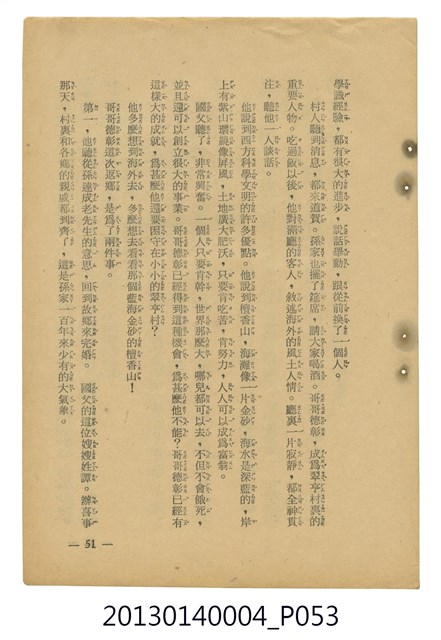 學識經驗，都有很大的進步，說話舉動，跟從前換了一個人。
村人聽到消息，都來道賀。孫家也擺了筵席，請大家喝酒。哥哥德彰，成爲翠亨村裏的
重要人物。吃過飯以後，他對滿廳的客人，敘述海外的風土人情。廳裏一片寂靜，都全神貫
注，聽他一人談話。
他說到西方科學文明的許多優點。他說到檀香山，海灘像一片金砂，海水是深藍的，岸
上有紫山環繞像屏風，土地廣大肥沃，只要肯吃苦，肯努力，人人可以成爲富翁。
國父聽了，非常興奮。一個人只要肯幹，世界那麼大，哪兒都可以去，不但不會餓死，
並且還可以創立很大的事業。哥哥德彰已經得到這種機會，爲甚麼他不能？哥哥德彰已經有
這樣大的成就，爲甚麼他還要困守在小小的翠亨村？
他多麼想到海外去，多麼想去看看那個藍海金砂的檀香山！
哥哥德彰這次返鄉，是爲了兩件事。
第一，他聽從孫達成老先生的意思，回到故鄉來完婚。 國父的這位嫂嫂姓譚。辦喜事
那天，村裏和各鄉的親戚都到齊了，這是孫家一百年來少有的大氣象。
— 51 —
20130140004_P053